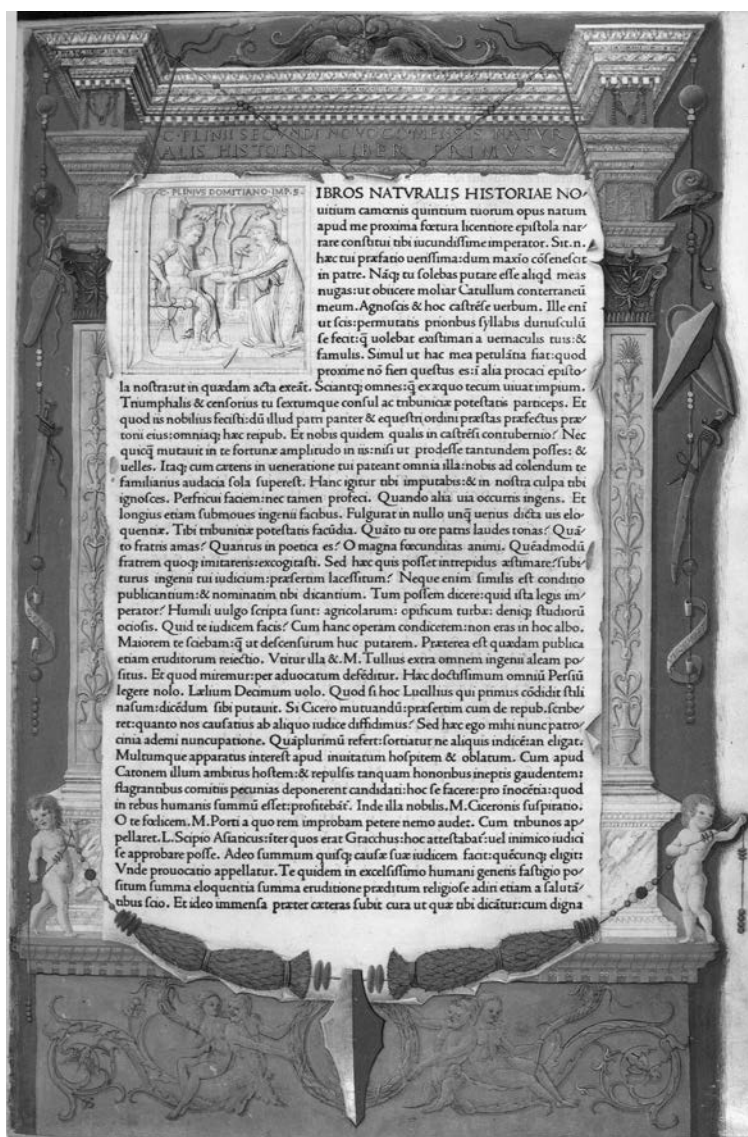 C·PLINII SECVNDI NOVOCOMENSIS NATVR
ALIS HISTORIE LIBER PRIMVS
C·PLINIVS DOMITIANO·IMP·S·
IBROS NATVRALIS HISTORIAE NO/
uitium camœnis quiritium tuorum opus natum
apud me proxima fœtura licentiore epistola nar/
rare constitui tibi iucundissime imperator. Sit.n.
hæc tui præfatio uerissima:dum maxīo cōsenescit
in patre. Náq; tu solebas putare esse aliqd meas
nugas:ut obiicere moliar Catullum conterraneū
meum. Agnoscis & hoc castrēse uerbum. Ille enī
ut scis:permutatis prioribus syllabis duriusculū
se fecit:q̄ uolebat existimari a uernaculis tuis:&
famulis. Simul ut hac mea petulātia fiat:quod
proxime nō fieri questus es:ī alia procaci episto/
la nostra:ut in quædam acta exeāt. Sciantq; omnes:q̄ ex æquo tecum uiuat impium.
Triumphalis & censorius tu sextumque consul ac tribuniciæ potestatis particeps. Et
quod iis nobilius fecisti:dū illud patri pariter & equestri ordini præstas præfectus præ/
torii eius:omniaq; hæc reipub. Et nobis quidem qualis in castrēsi contubernio? Nec
quicq̄ mutauit in te fortunæ amplitudo in iis:nisi ut prodesse tantundem posses: &
uelles. Itaq; cum cæteris in ueneratione tui pateant omnia illa:nobis ad colendum te
familiarius audacia sola superest. Hanc igitur tibi imputabis:& in nostra culpa tibi
ignosces. Perfricui faciem:nec tamen profeci. Quando alia uia occurris ingens. Et
longius etiam submoues ingenii facibus. Fulgurat in nullo unq̄ uerius dicta uis elo/
quentiæ. Tibi tribunitiæ potestatis facūdia. Quāto tu ore patris laudes tonas? Quā/
to fratris amas? Quantus in poetica es? O magna fœcunditas animi. Quēadmodū
fratrem quoq; imitareris:excogitasti. Sed hæc quis posset intrepidus æstimare?subi/
turus ingenii tui iudicium:præsertim lacessitum? Neque enim similis est conditio
publicantium:& nominatim tibi dicantium. Tum possem dicere:quid ista legis im/
perator? Humili uulgo scripta sunt: agricolarum: opificum turbæ: deniq; studiorū
ociosis. Quid te iudicem facis? Cum hanc operam condicerem:non eras in hoc albo.
Maiorem te sciebam:q̄ ut descensurum huc putarem. Præterea est quædam publica
etiam eruditorum reiectio. Vtitur illa &.M.Tullius extra omnem ingenii aleam po/
situs. Et quod miremur:per aduocatum defēditur. Hæc doctissimum omniū Persiū
legere nolo. Lælium Decimum uolo. Quod si hoc Lucillius qui primus cōdidit stili
nasum:dicēdum sibi putauit. Si Cicero mutuandū:præsertim cum de repub.scribe/
ret:quanto nos causatius ab aliquo iudice diffidimus? Sed hæc ego mihi nunc patro/
cinia ademi nuncupatione. Quāplurimū refert:sortiatur ne aliquis indicē:an eligat.
Multumque apparatus interest apud inuitatum hospitem & oblatum. Cum apud
Catonem illum ambitus hostem:& repulsis tanquam honoribus ineptis gaudentem:
flagrantibus comitiis pecunias deponerent candidati:hoc se facere:pro inocētia:quod
in rebus humanis summū esset:profitebāt̄. Inde illa nobilis.M.Ciceronis suspiratio.
O te fœlicem.M.Porti a quo rem improbam petere nemo audet. Cum tribunos ap/
pellaret.L.Scipio Asiaticus:īter quos erat Gracchus:hoc attestabat̄:uel inimico iudici
se approbare posse. Adeo summum quisq; causæ suæ iudicem facit:quēcunq; eligit:
Vnde prouocatio appellatur. Te quidem in excelsissimo humani generis fastigio po/
situm summa eloquentia summa eruditione præditum religiose adiri etiam a salutā/
tibus scio. Et ideo immensa præter cæteras subit cura ut quæ tibi dicātur:cum digna